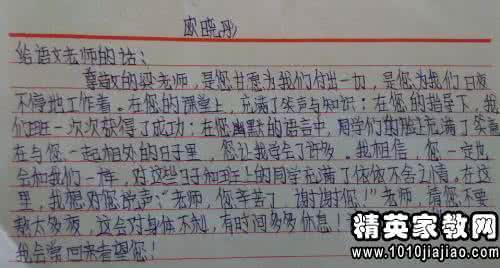 欧晓彤
给语文老师的话:
尊敬的梁老师,是您甘愿为我们付出一切,是您为我们日夜
不停地工作着。在您的课堂上,充满了笑声与知识;在您的指导下,我
们班一次次获得了成功;在您幽默的语言中,同学们的脸上充满了笑容
在与您一起相处的日子里,您让我学会了许多。我相信,您一定也
会和我们一样,对这些日子和班上的同学充满了依依不舍之情。在这
里,我想对您说声:“老师,您辛苦了,谢谢您!”老师,请您不要
熬太多夜,这会对身体不利,有时间多多休息!
我会常回来看望您!
精英家教网
www.1010jiajiao.com